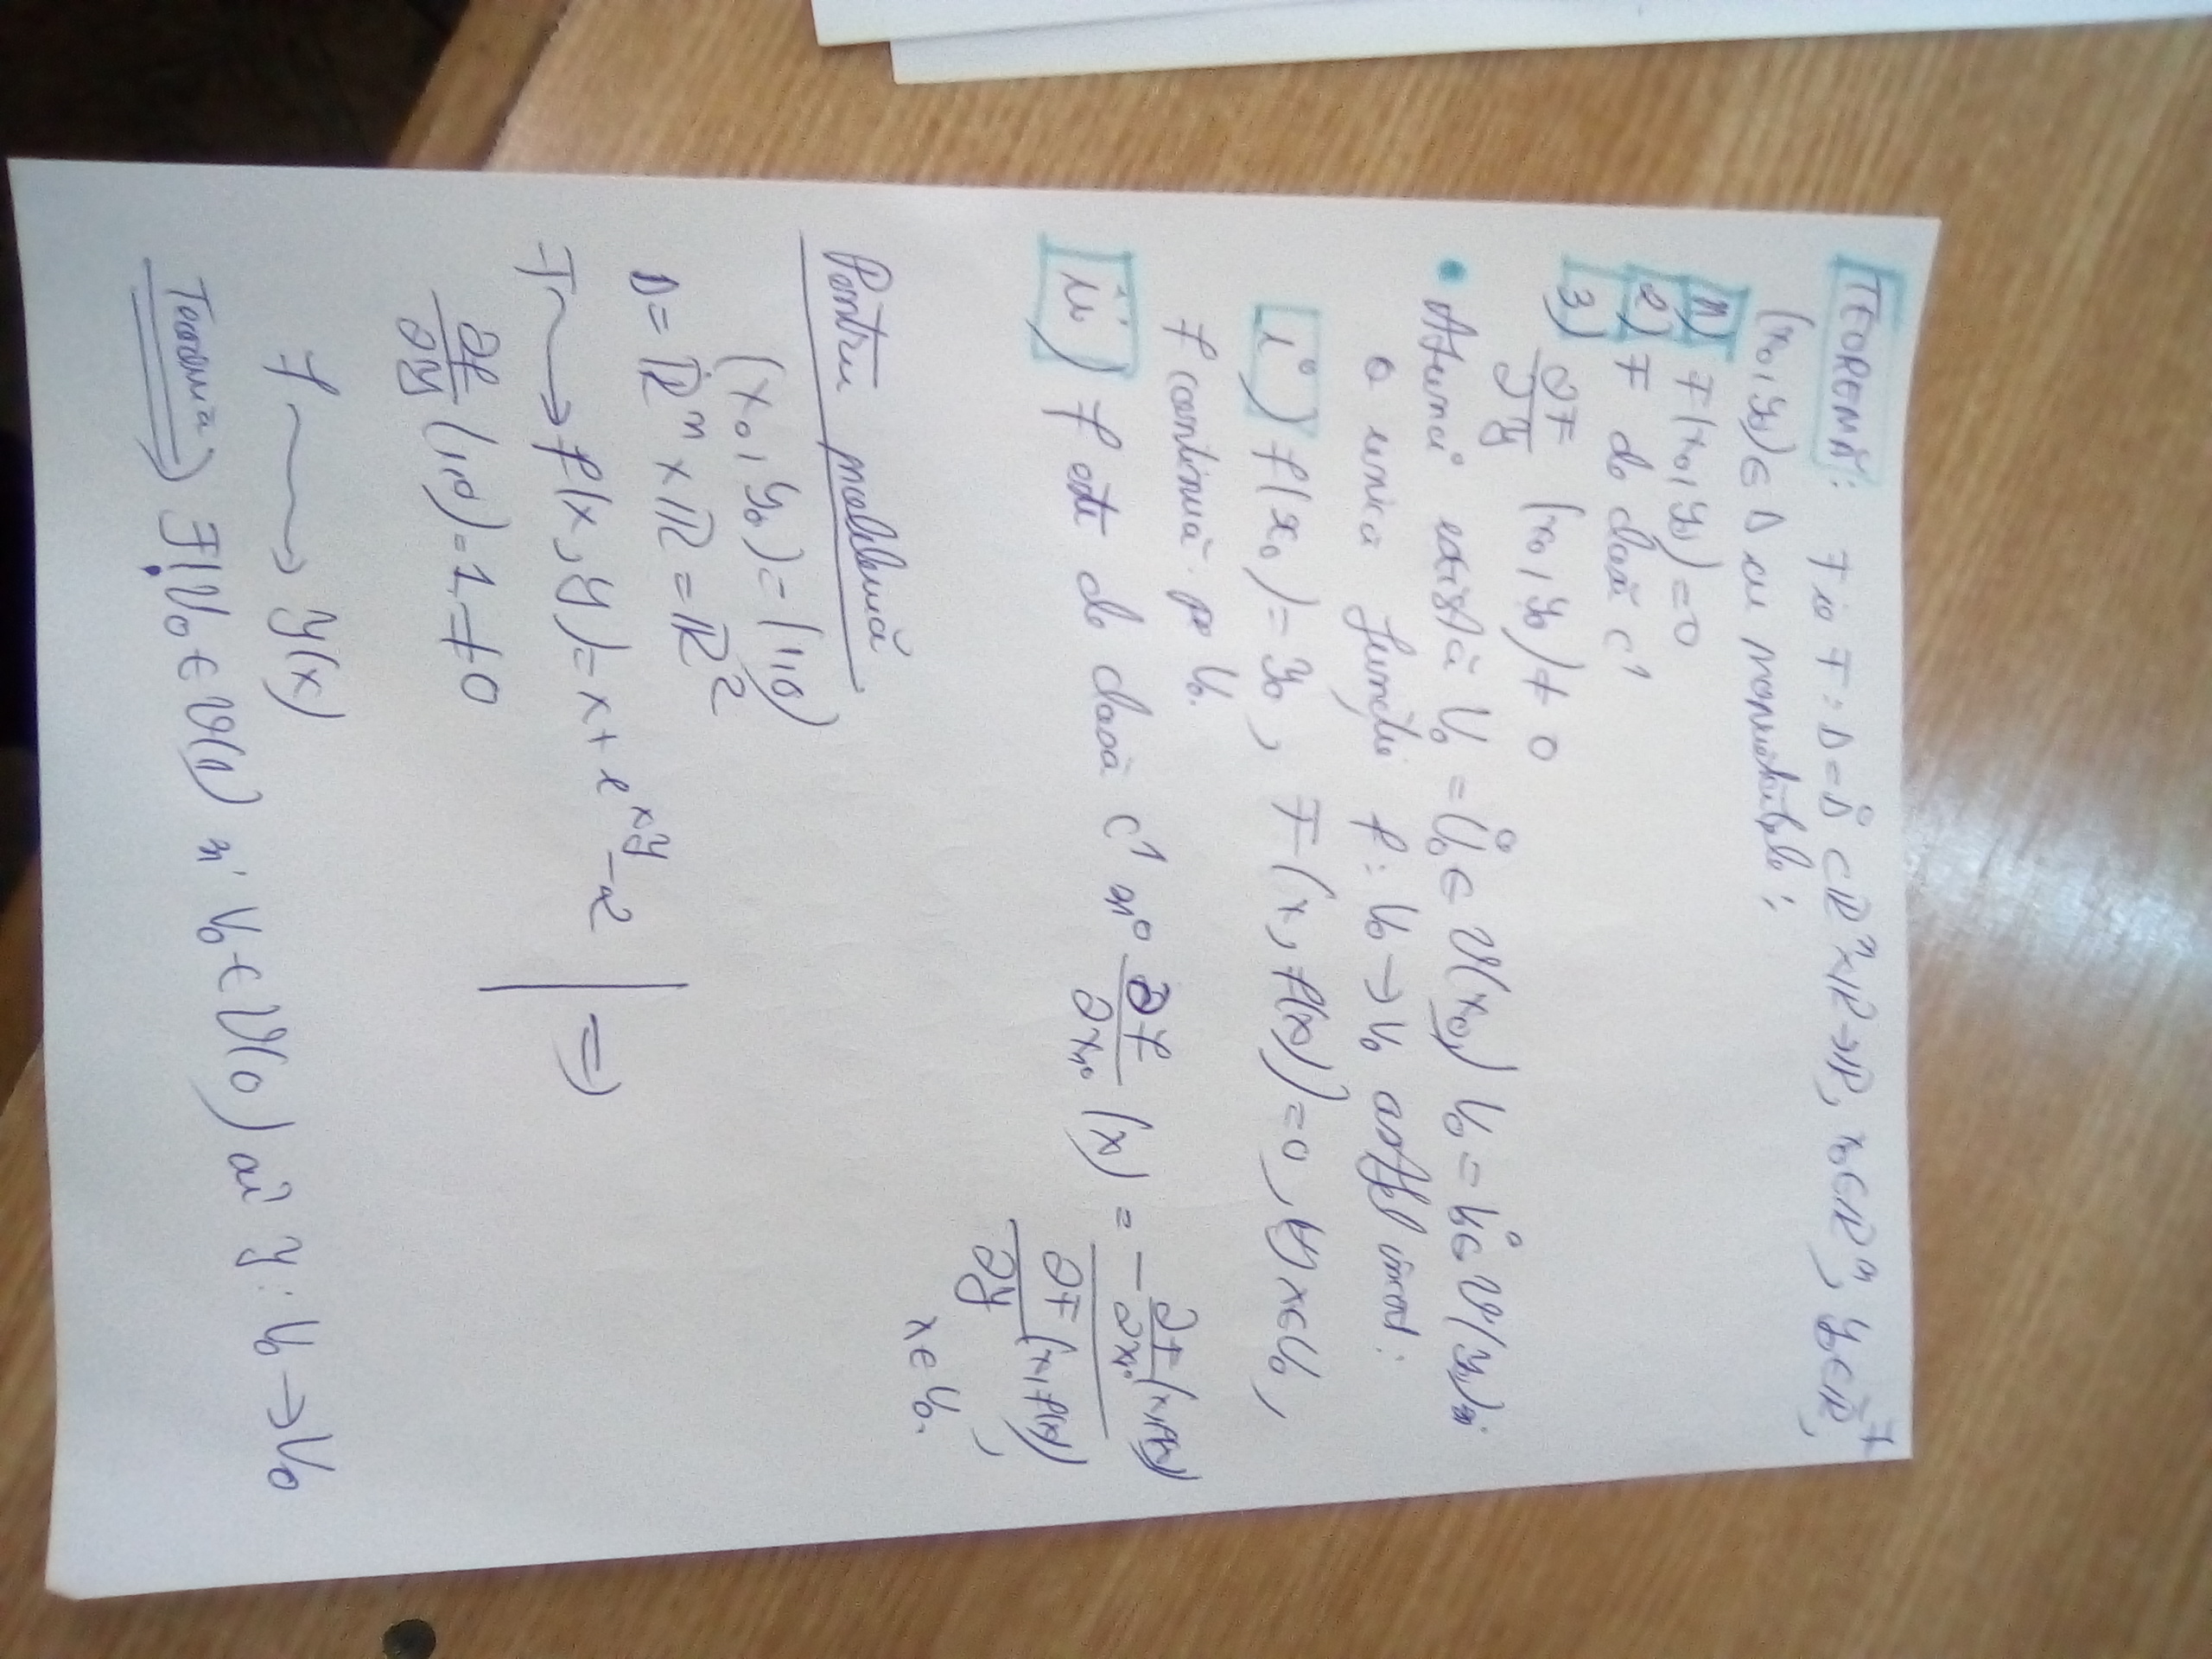 7
TEOREMĂ: Fie F: D = D̊ ⊂ ℝⁿ×ℝ → ℝ, x₀ ∈ ℝⁿ, y₀ ∈ ℝ,
(x₀, y₀) ∈ D cu proprietățile:
1) F(x₀, y₀) = 0
2) F de clasă C¹
3) ∂F/∂y (x₀, y₀) ≠ 0
• Atunci există U₀ = Ů₀ ∈ V(x₀), V₀ = V̊₀ ∈ V(y₀) și
o unică funcție f: U₀ → V₀ astfel încât:
i) f(x₀) = y₀, F(x, f(x)) = 0, ∀ x ∈ U₀,
f continuă pe U₀.
ii) f este de clasă C¹ și ∂f/∂xᵢ (x) = - ∂F/∂xᵢ (x, f(x)) / ∂F/∂y (x, f(x)),
x ∈ U₀.
Pentru problemă
(x₀, y₀) = (1,0)
D = ℝⁿ × ℝ = ℝ²
F ⟿ f(x, y) = x + e^xy - 2 | ⇒
∂f/∂y (1,0) = 1 ≠ 0
f ⟿ y(x)
Teoremă ⇒ ∃! U₀ ∈ V(1) și V₀ ∈ V(0) aî y: U₀ → V₀